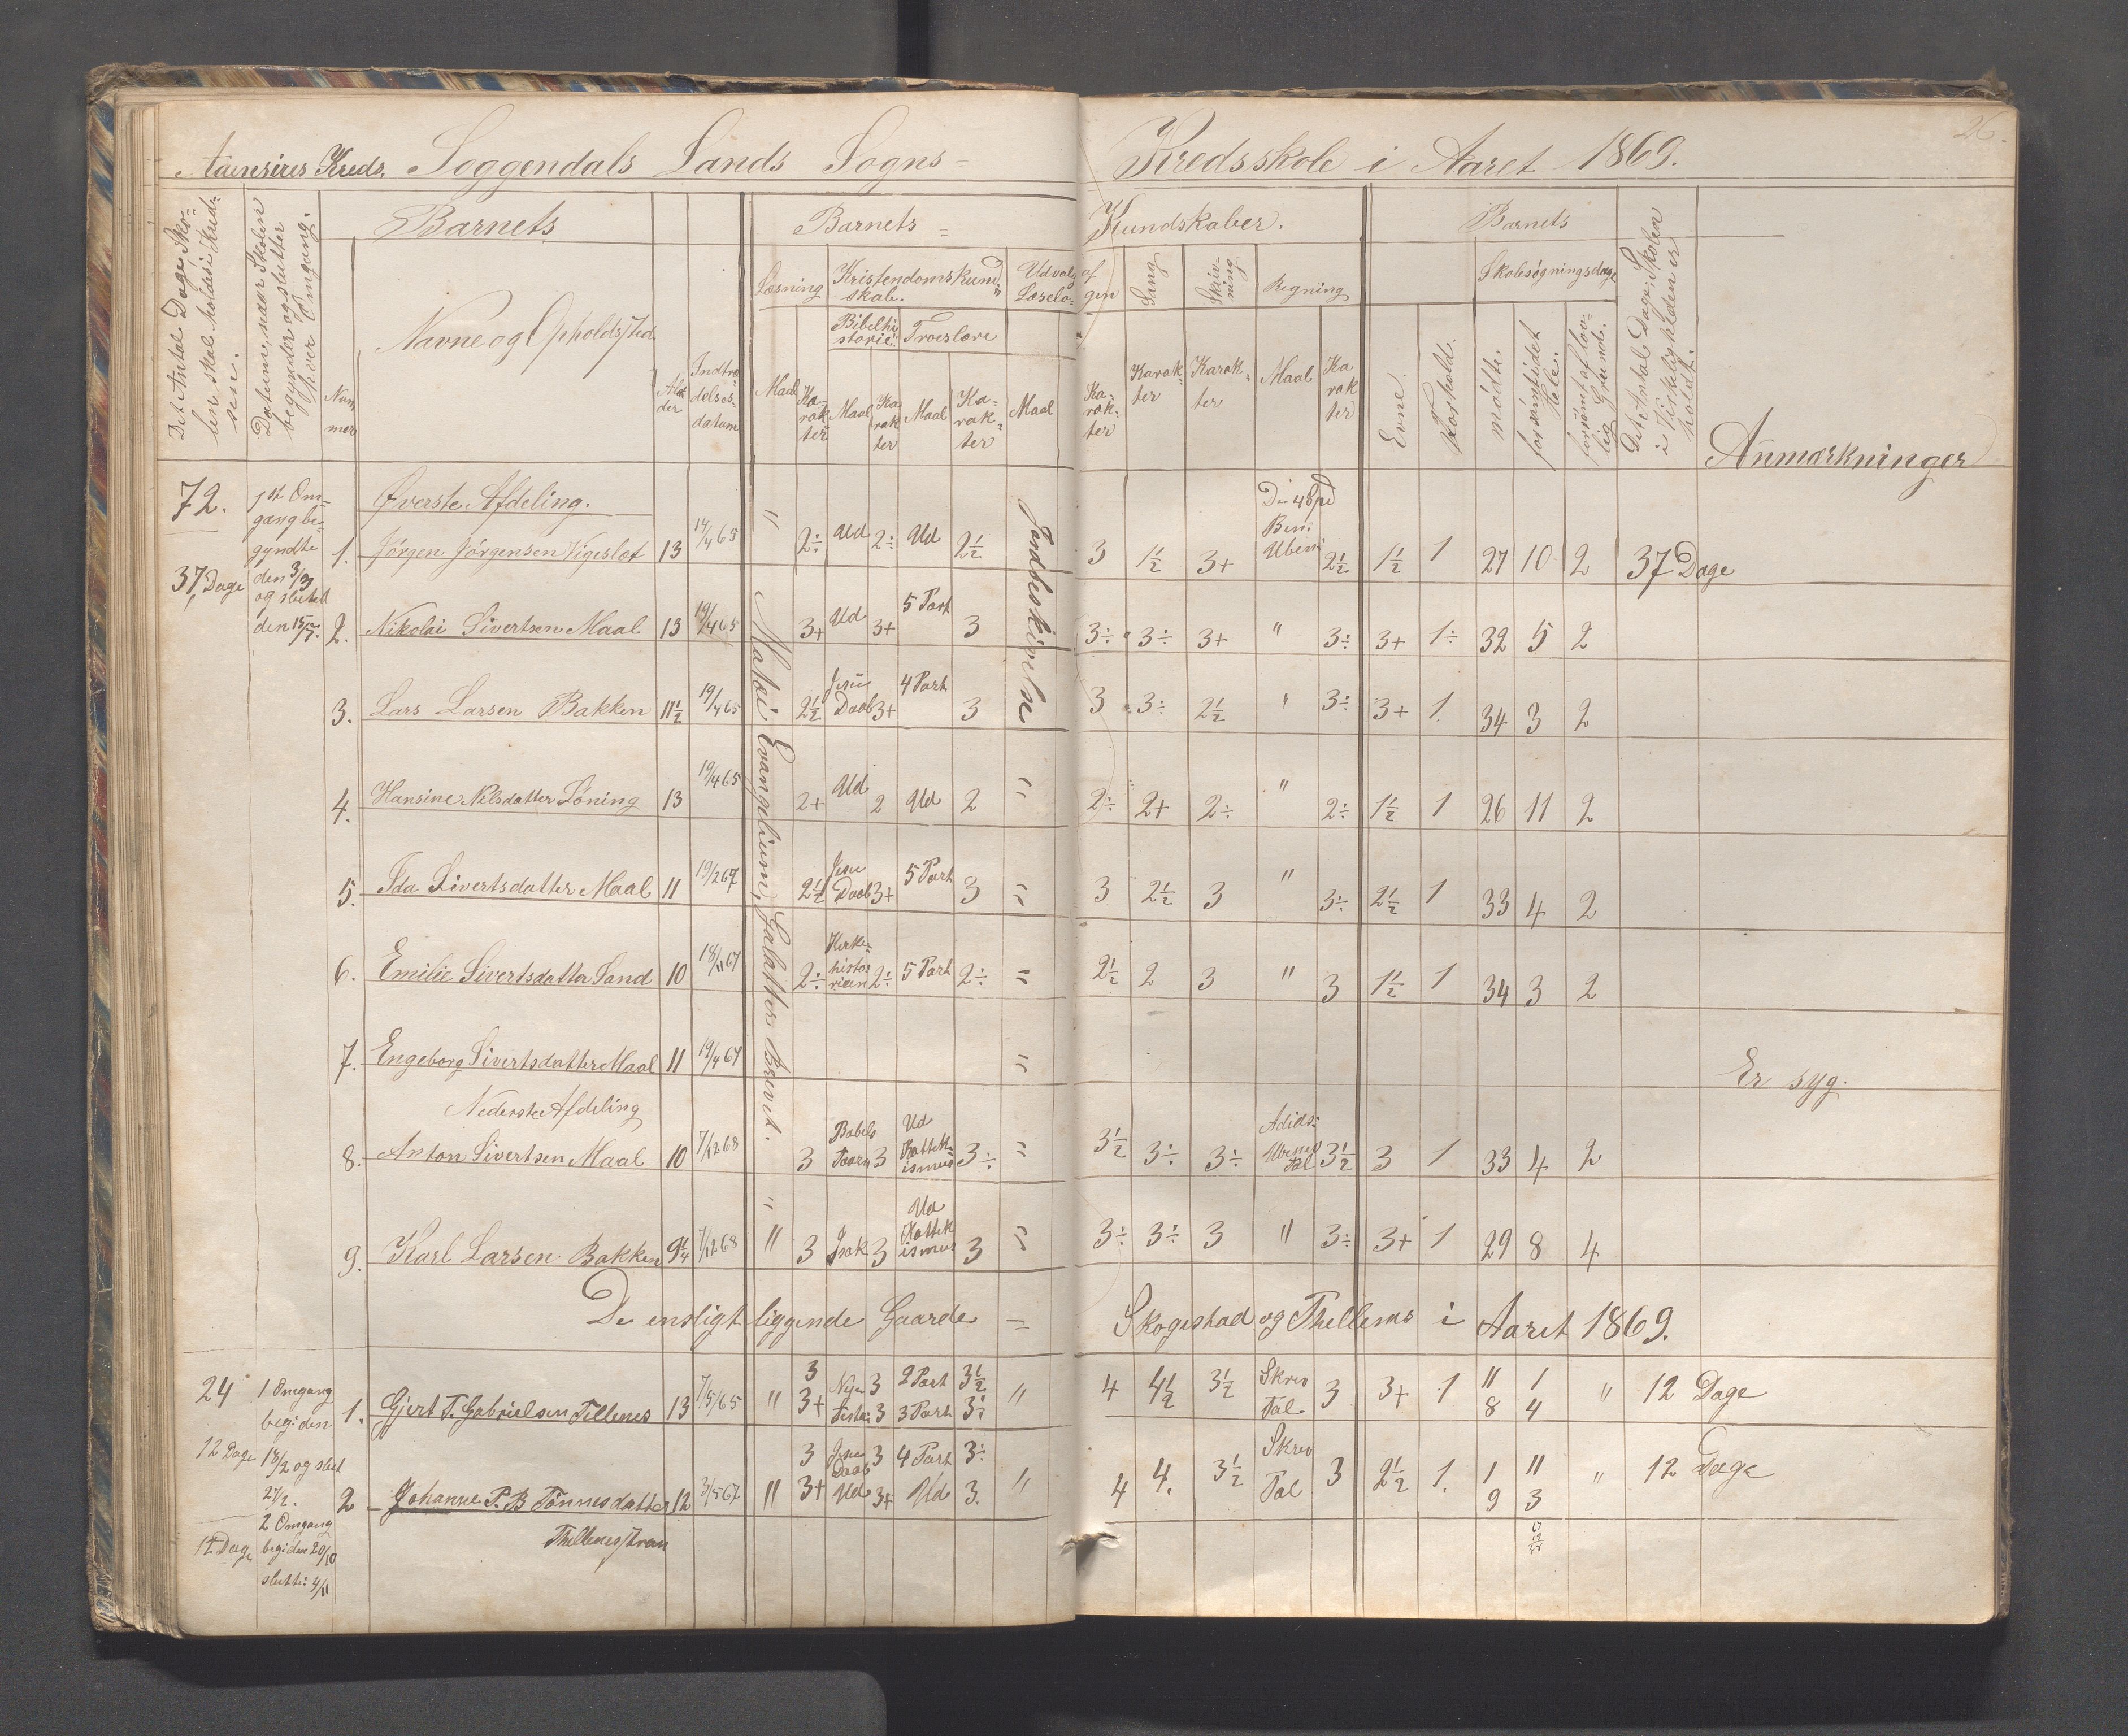 26.
Aaensires Kreds. Soggendals Lands Sogns = Kredsskole i Aaret 1869.
Det Antal Dage, Skolen skal holdes i Kredsen.
Datum, naar Skolen begynder og slutter hver Omgang.
Barnets
Nummer
Navne og Opholdssted
Alder
Indtrædelsesdatum
Barnets = Kundskaber.
Læsning
Kristendomskundskab.
Udvalg af Læsebogen
Sang
Skrivning
Regning
Bibelhistorie
Troeslære
Maal Karakter Maal Karakter Maal Karakter Maal Karakter Karakter Karakter Maal Karakter
Barnets
Evne
Forhold.
Skolesøgningsdage
mødte.
forsømt idet Hele.
forsømt af lovlig Grund.
Det Antal Dage, Skolen i Virkeligheden er holdt.
Anmærkninger
72.
37 Dage
1ste Omgang begyndte den 3/3 og sluttet den 15/5.
Øverste Afdeling.
Matæi Evangelium, Galatter Brevet.
Jordbeskivelse
1. Jörgen Jörgensen Vigeslot 13 19/4 65 " 2÷ Ud 2÷ Ud 2½ 3 1½ 3+ De 4 Sp i Ben: Uben: 2½ 1½ 1 27 10 2 37 Dage
2. Nikolai Sivertsen Maal 13 19/4 65 3+ Ud 3+ 5 Part 3 3÷ 3÷ 3+ " 3÷ 3+ 1÷ 32 5 2
3. Lars Larsen Bakken 11½ 19/4 65 2½ Jesu Daab 3+ 4 Part 3 3 3÷ 2½ " 3÷ 3+ 1. 34 3 2
4. Hansine Nilsdatter Löning 13 19/4 65 2+ Ud 2 Ud 2 " 2÷ 2+ 2÷ " 2÷ 1½ 1 26 11 2
5. Ida Sivertsdatter Maal 11 19/2 67 2½ Jesu Daab 3+ 5 Part 3 " 3 2½ 3 " 3÷ 2½ 1 33 4 2
6. Emilie Sivertsdatter Sand 10 18/11 67 2÷ Kirkehistorien 2÷ 5 Part 2÷ " 2½ 2 3 " 3 1½ 1 34 3 2
7. Engeborg Sivertsdatter Maal 11 19/4 67 " Er syg.
Nederste Afdeling
8. Anton Sivertsen Maal 10 7/12 68 3 Babels Taarn 3 Ud Kattekismus 3÷ " 3½ 3÷ 3÷ Adids: Ubenev Tal 3½ 3 1 33 4 2
9. Karl Larsen Bakken 9¼ 7/12 68 " 3 Isak 3 Ud Kattekismus 3 " 3÷ 3÷ 3 " 3÷ 3+ 1 29 8 4
De ensligt liggende Gaarde = Skogestad og Thellenes i Aaret 1869.
24
12 Dage
12 Dage
1 Omgang begi den 18/2 og slut 27/2.
2 Omgang begi den 20/10 slutti: 4/11
1. Gjert T. Gabrielsen Tellenes 13 7/5/65 " 3 3+ Nye Testa: 3 3 2 Part 3 Part 3½ 3÷ " 4 4½ 3½ Skrev Tal 3 3+ 1 11 8 1 4 " 12 Dage
2 Johanne P. B Tönnesdatter 12 3/5 67 " 3 3+ Jesu Daab Ud 3 3+ 4 Part Ud 3÷ 3. " 4 4. 3½ Skrev Tal 3 2½ 1. 1 9 11 3 " 12 Dage
Thellenesstran